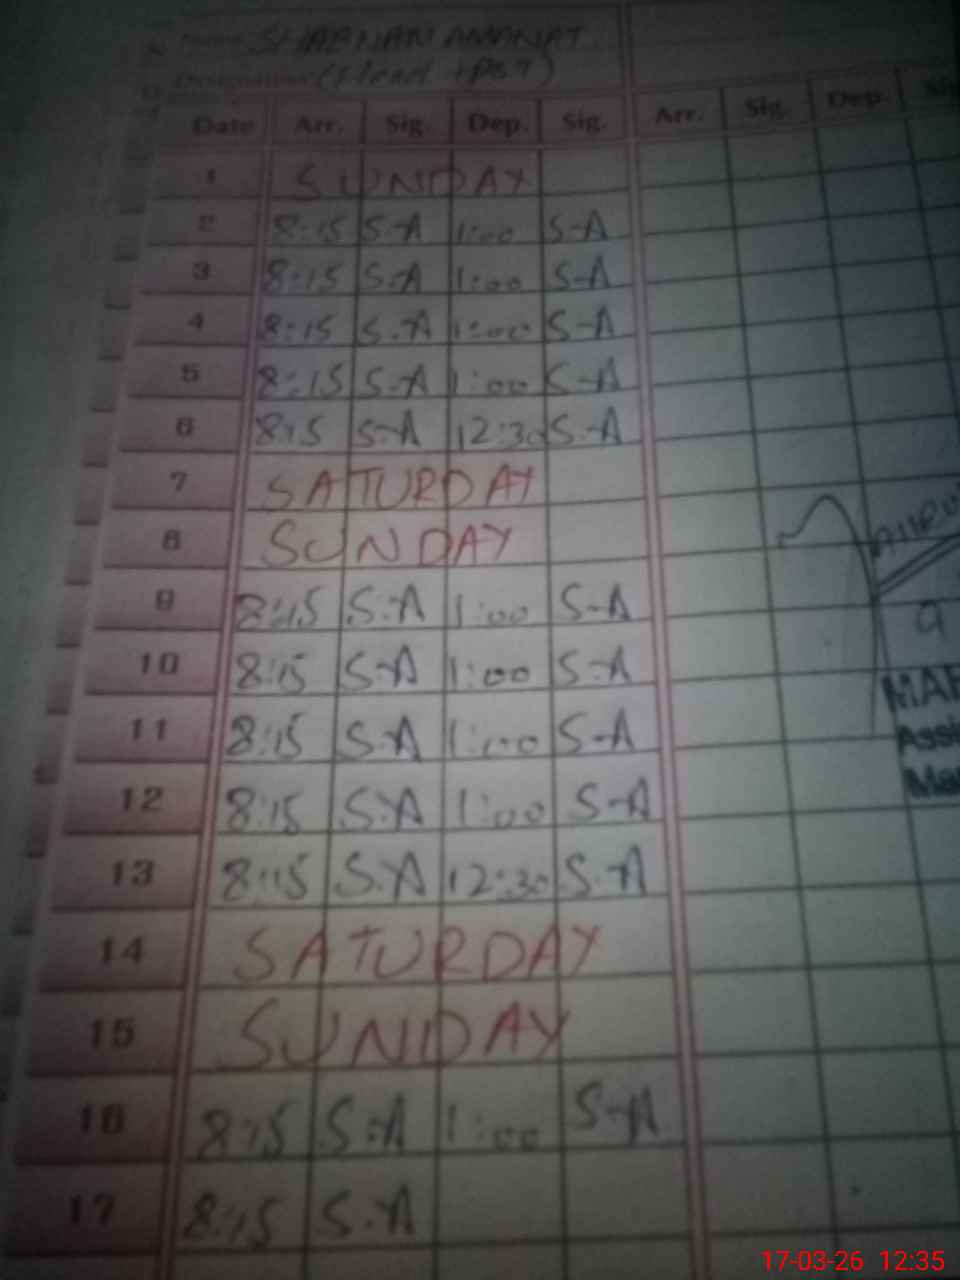 Name: SHABNAM AMANAT
Designation: (Head
Date Arr. Sig. Dep. Sig. Arr. Sig. Dep. Sig
1 SUNDAY
2 8:15 S-A 1:00 S-A
3 8:15 S-A 1:00 S-A
4 8:15 S.A 1:00 S-A
5 8:15 S-A 1:00 S-A
6 8:15 S-A 12:30 S-A
7 SATURDAY
8 SUNDAY
9 8:15 S.A 1:00 S-A
10 8:15 S-A 1:00 S-A
11 8:15 S.A 1:00 S-A
MAR
Assi
12 8:15 S.A 1:00 S-A
Mar
13 8:15 S.A 12:30 S.A
14 SATURDAY
15 SUNDAY
16 8:15 S.A 1:00 S-A
17 8:15 S.A
17-03-26 12:35